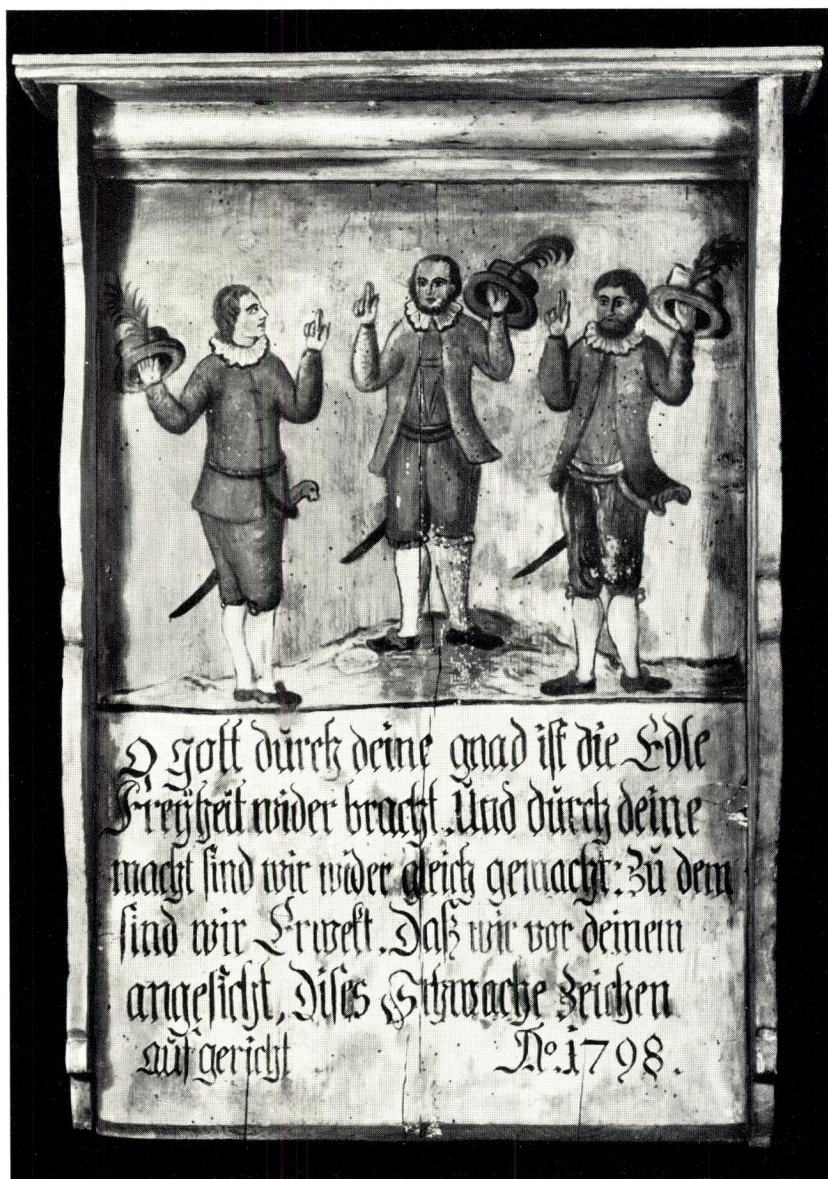 O Gott dŭrch deine gnad ist die Edle
Freÿheit wider bracht. Und dŭrch deine
macht sind wir wider gleich gemacht: Zŭ dem
sind wir Erwekt. Daß wir vor deinem
angesicht, Dises Schwache Zeichen
aŭf gericht Aº. 1798.